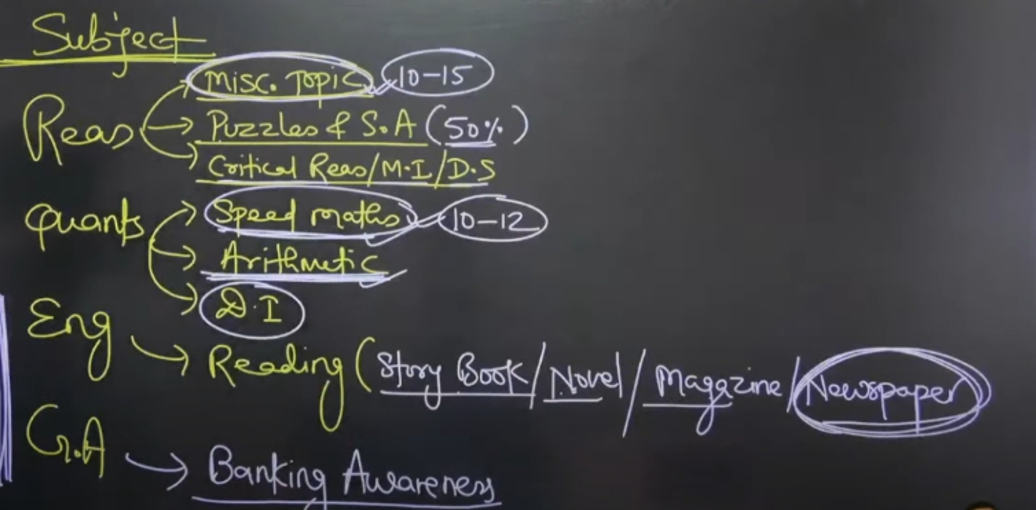 Subject
Reas → Misc. Topic 10-15
→ Puzzles & S.A (50%)
→ Critical Reas/M.I/D.S
Quants → Speed maths 10-12
→ Arithmetic
→ D.I
Eng → Reading (Story Book/Novel/Magazine/Newspaper
G.A → Banking Awareness